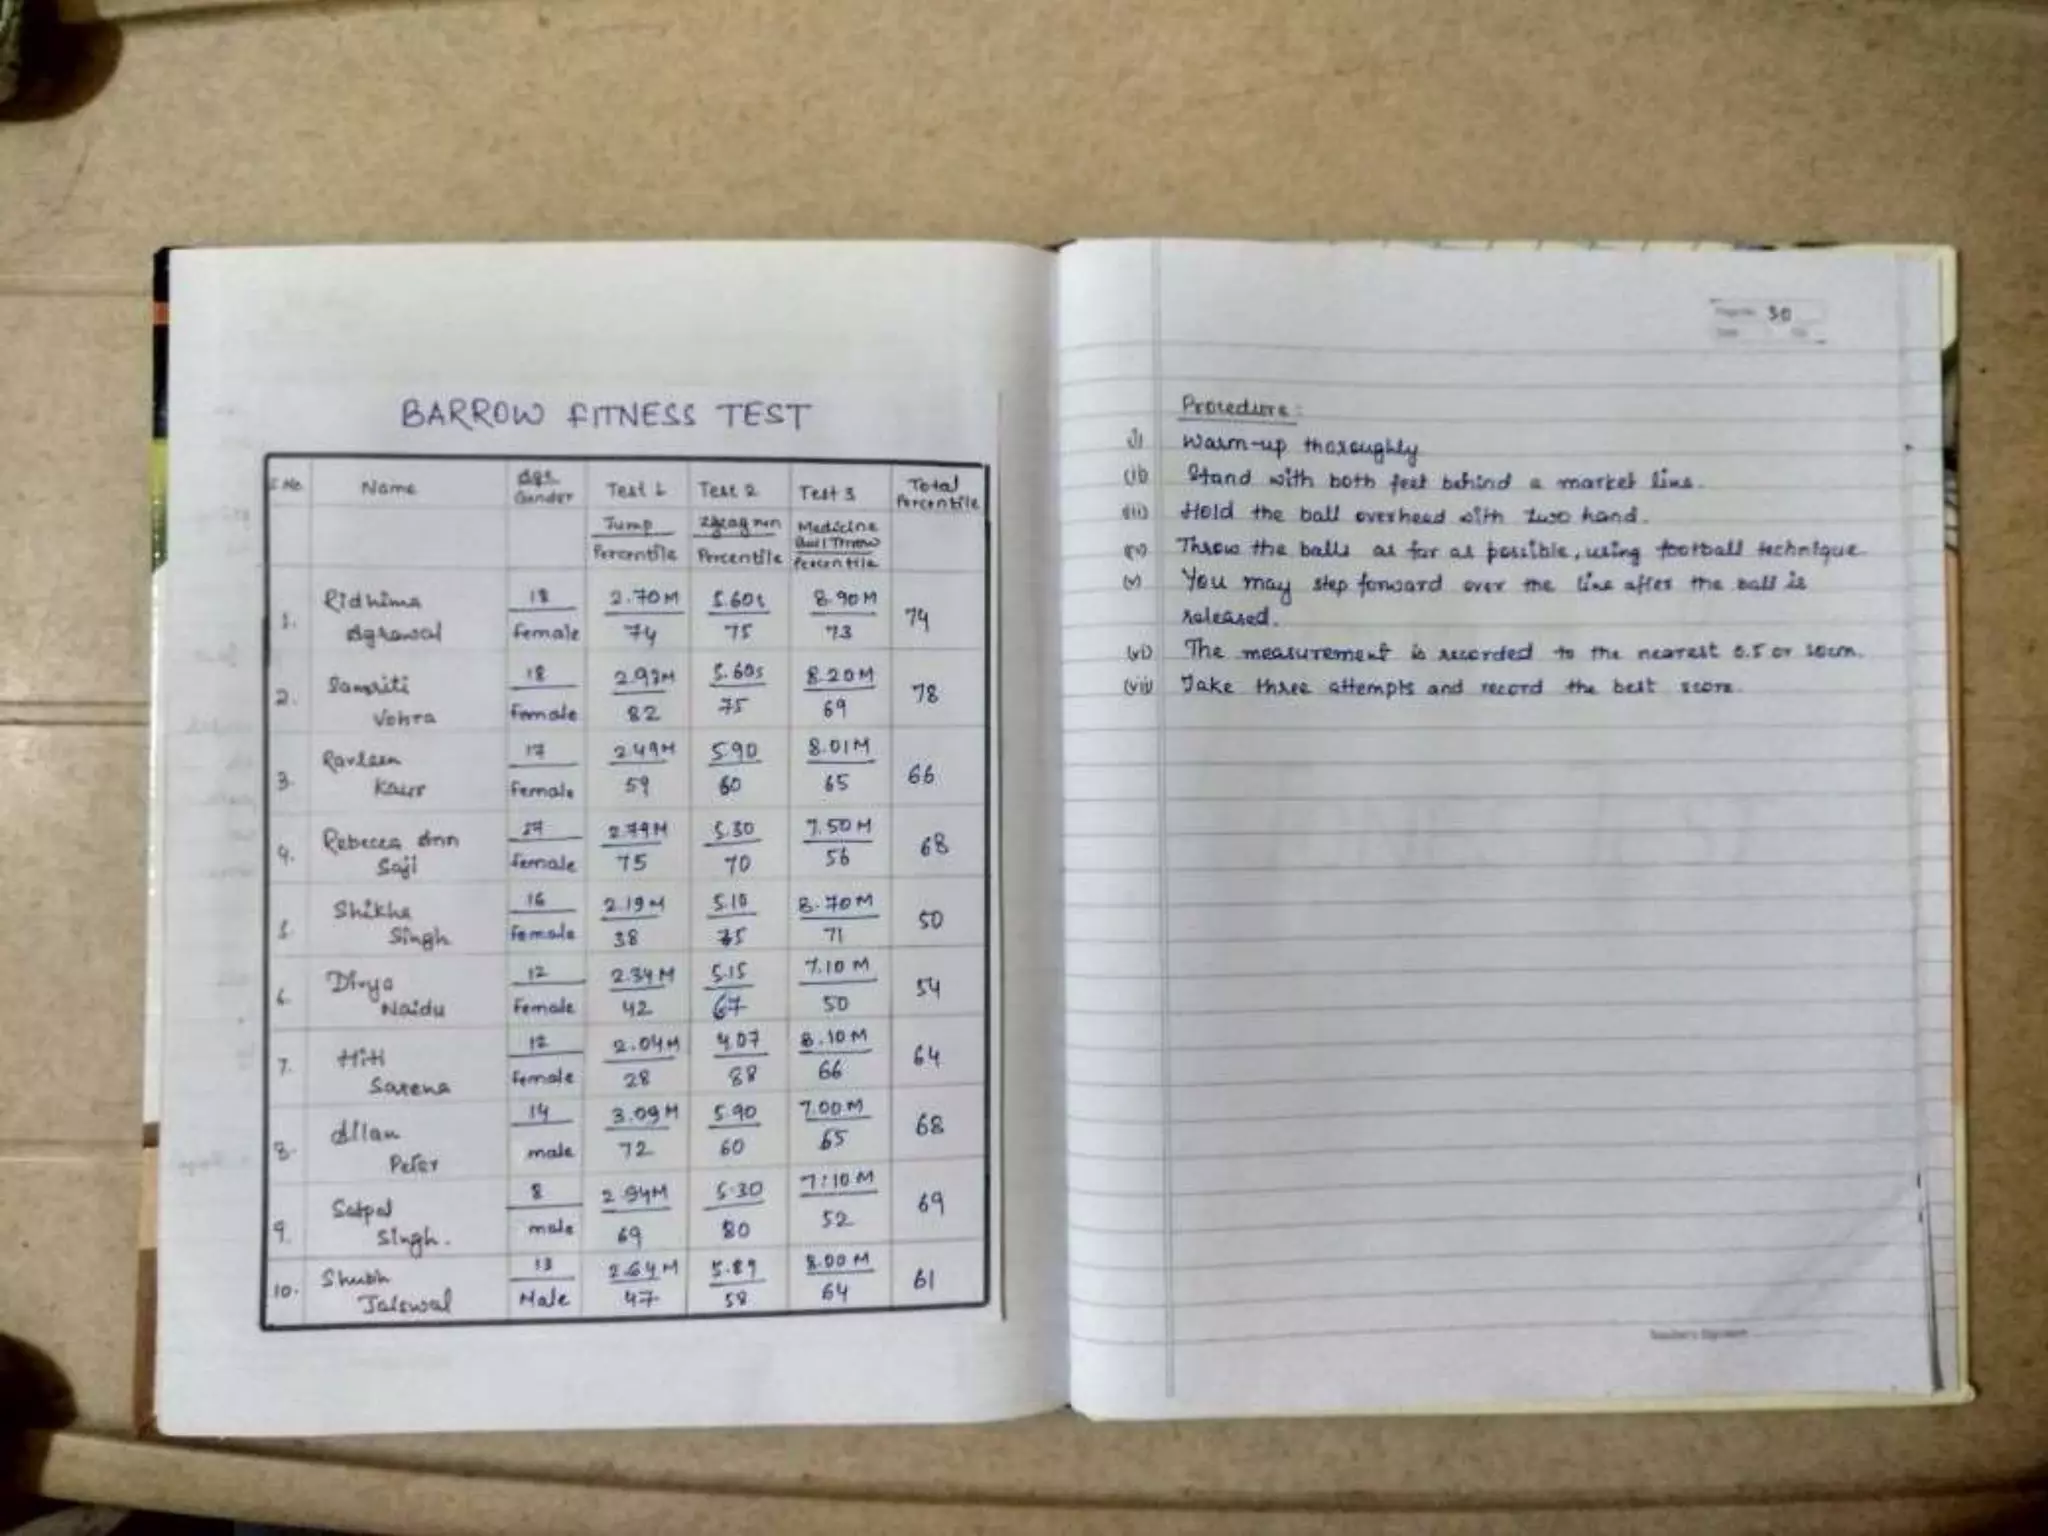 BARROW FITNESS TEST
S.No. Name Age Gender Test 1 Test 2 Test 3 Total Percentile
Jump Percentile Zigzag run Percentile Medicine Ball Throw Percentile
1. Ridhima Agrawal 18 female 2.70M 74 5.60s 75 8.90M 73 74
2. Samriti Vohra 18 female 2.97M 82 5.60s 75 8.20M 69 78
3. Ravleen Kaur 17 female 2.49M 59 5.90 60 8.01M 65 66
4. Rebecca Ann Saji 27 female 2.79M 75 5.30 70 7.50M 56 68
5. Shikha Singh 16 female 2.19M 38 5.10 8.70M 71 50
6. Divya Naidu 12 female 2.34M 42 5.15 67 7.10M 50 54
7. Hiti Saxena 12 female 2.04M 28 4.07 88 8.10M 66 64
8. Allan Peter 14 male 3.09M 72 5.90 60 7.00M 65 68
9. Satpal Singh. 8 male 2.94M 69 5.30 80 7:10M 52 69
10. Shubh Jaiswal 13 Male 2.64M 47 5.89 58 8.00M 64 61
Page No. 30
Date
Procedure:
(i) Warm-up thoroughly
(ii) Stand with both feet behind a market line.
(iii) Hold the ball overhead with two hand.
(iv) Throw the balls as far as possible, using football technique
(v) You may step forward over the line after the ball is
released.
(vi) The measurement is recorded to the nearest 0.5 or 10cm.
(vii) Take three attempts and record the best score.
Teacher's Signature